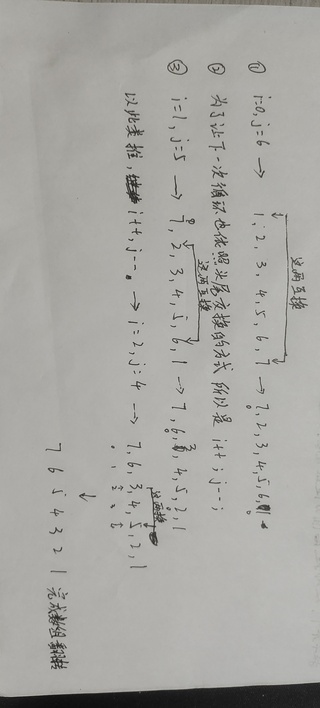 这两互换
① i=0, j=6 → 1, 2, 3, 4, 5, 6, 7 → 7, 2, 3, 4, 5, 6, 1
② 为了让下一次循环也依照头尾交换的方式 所以是 i++; j--;
这两互换
③ i=1, j=5 → 7, 2, 3, 4, 5, 6, 1 → 7, 6, 3, 4, 5, 2, 1
这两换
以此类推, i++, j--. → i=2, j=4 → 7, 6, 3, 4, 5, 2, 1
↓
7 6 5 4 3 2 1 完成数组翻转